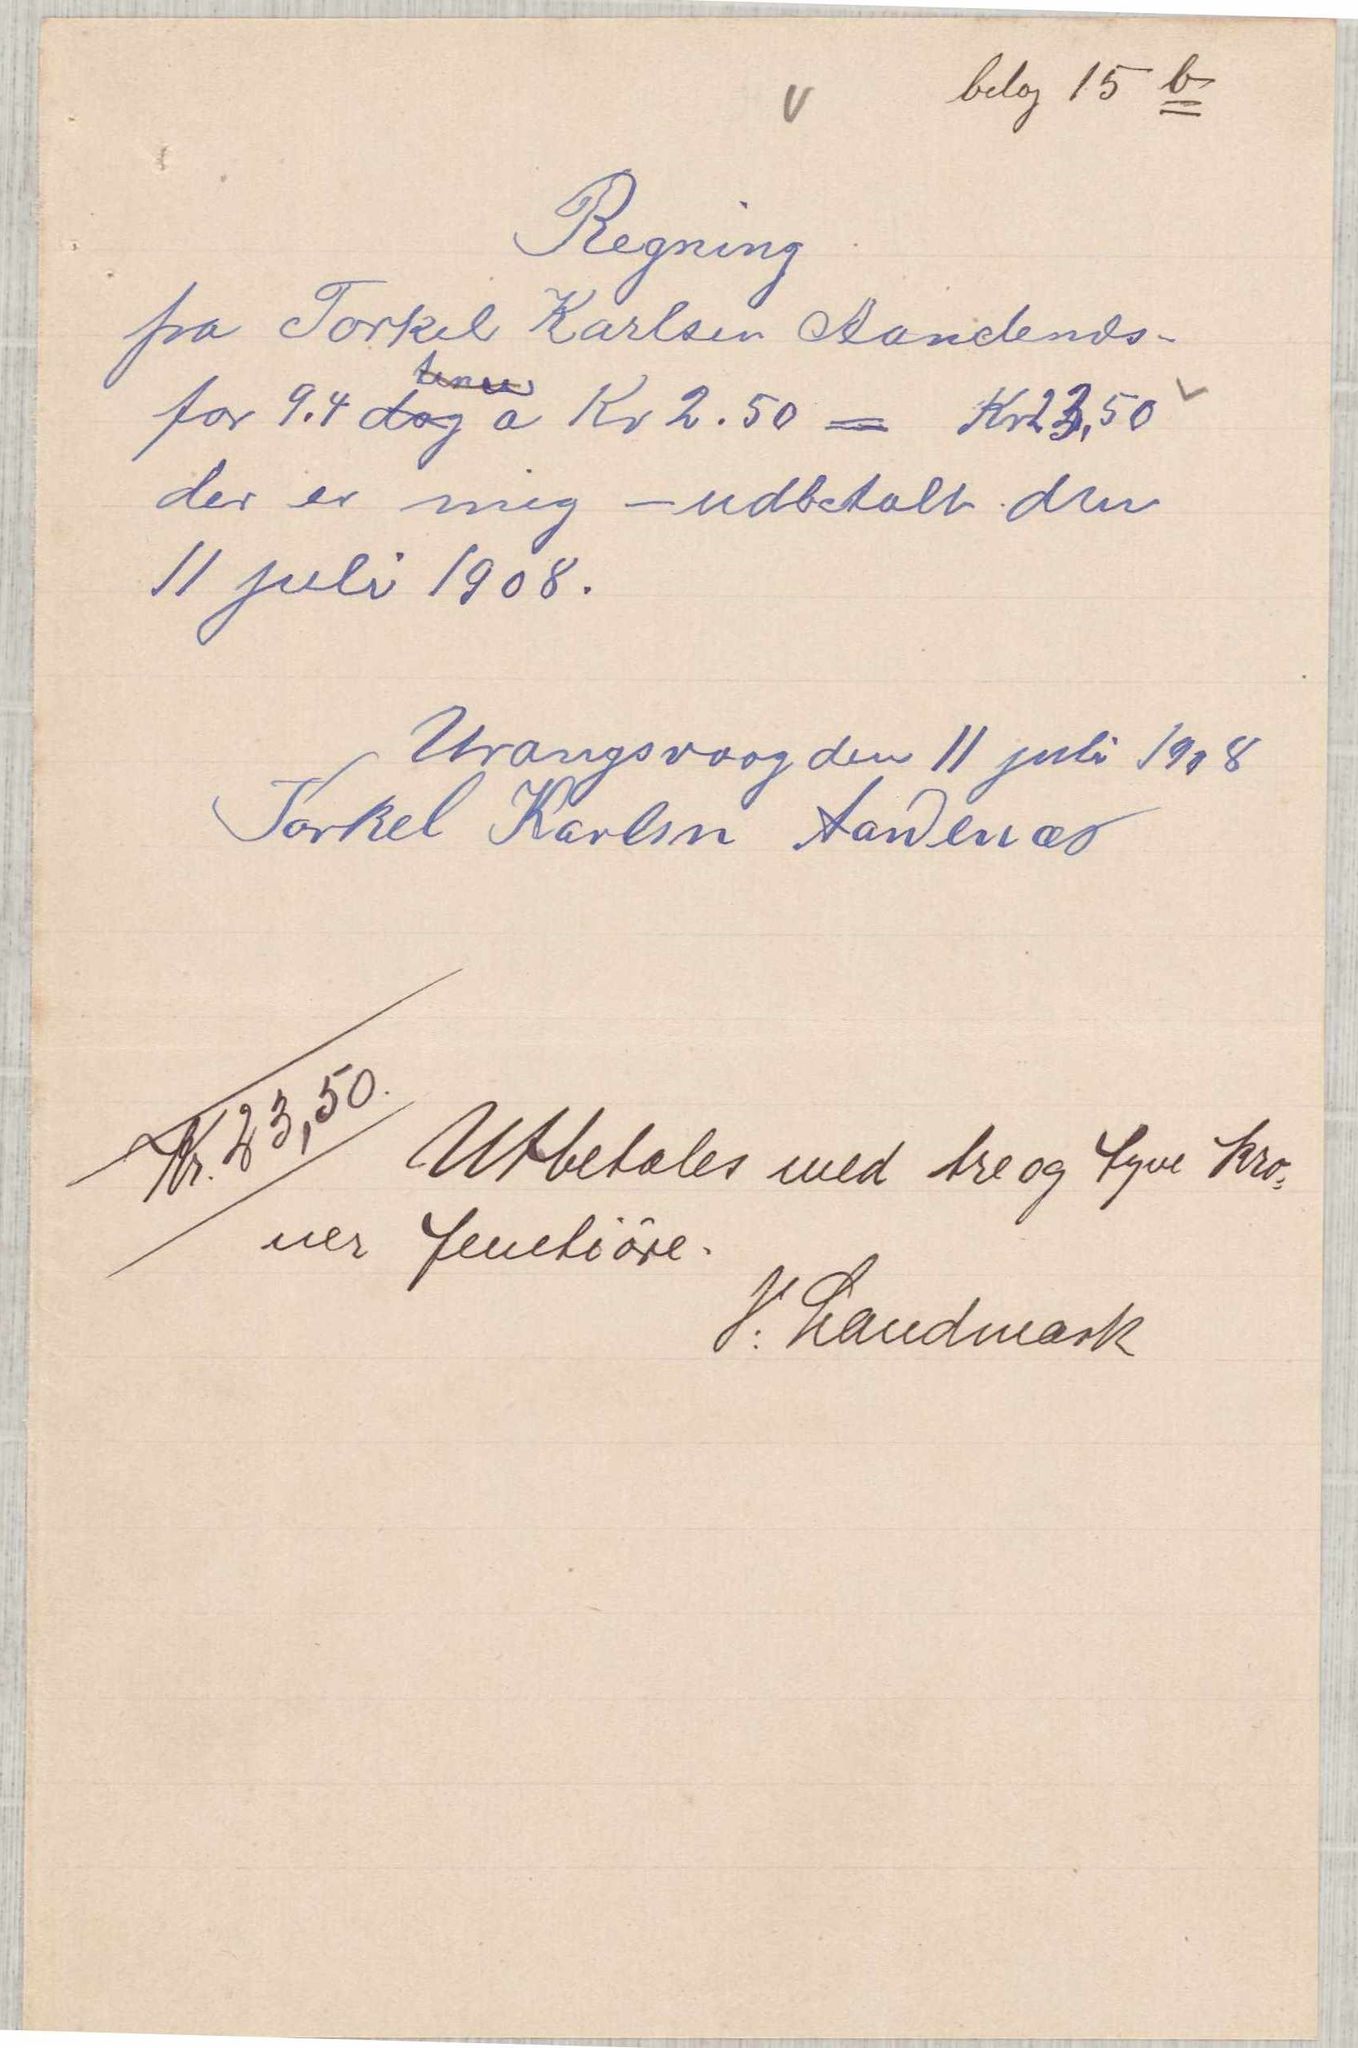 bilag 15 b
Regning
fra Torkel Karlsen Aandenæs-
for 9.4 dag a Kr 2.50 = Kr 23,50
der er mig - udbetalt den
11 juli 1908.
Urangsvaag den 11 juli 1908
Torkel Karlsn Aandenæs
Kr. 23,50.
Utbetales med tre og tyve kro-
ner femti öre.
V. Landmark